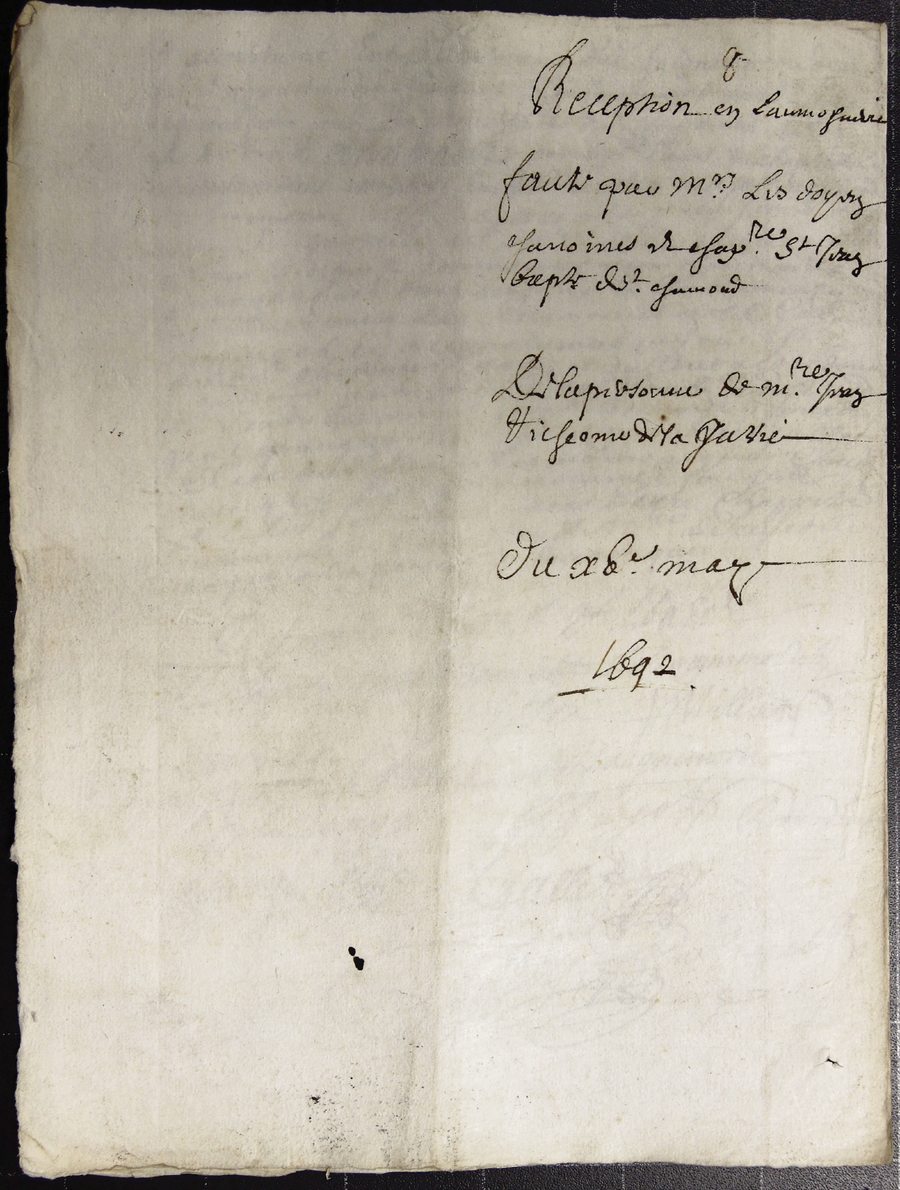 8
Reception en Laumosnerie
faicte par Mrs Les doyen
chanoines et chapre St Jean
bapte de St chamond
De la personne de mre Jean
de la
Du xbe may
1692